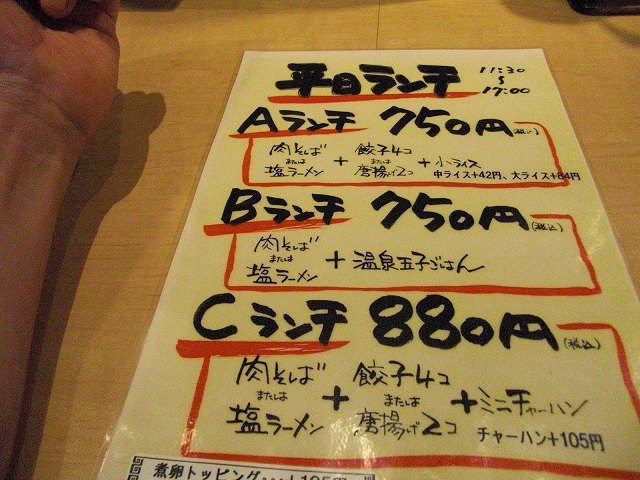 平日ランチ 11:30
～
17:00
Aランチ 750円(税込)
肉そば または 塩ラーメン + 餃子4コ または 唐揚げ2コ + 小ライス
中ライス+42円、大ライス+84円
Bランチ 750円(税込)
肉そば または 塩ラーメン + 温泉玉子ごはん
Cランチ 880円(税込)
肉そば または 塩ラーメン + 餃子4コ または 唐揚げ2コ + ミニチャーハン
チャーハン+105円
煮卵トッピング・・・+105円